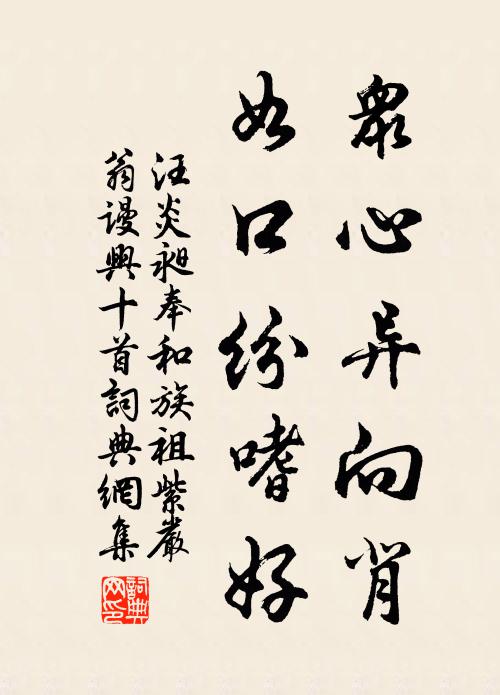 衆心异向肯
如口紛嗜好
汪炎昶奉和族祖紫巖
翁謾興十首詞典網集
詞典網印